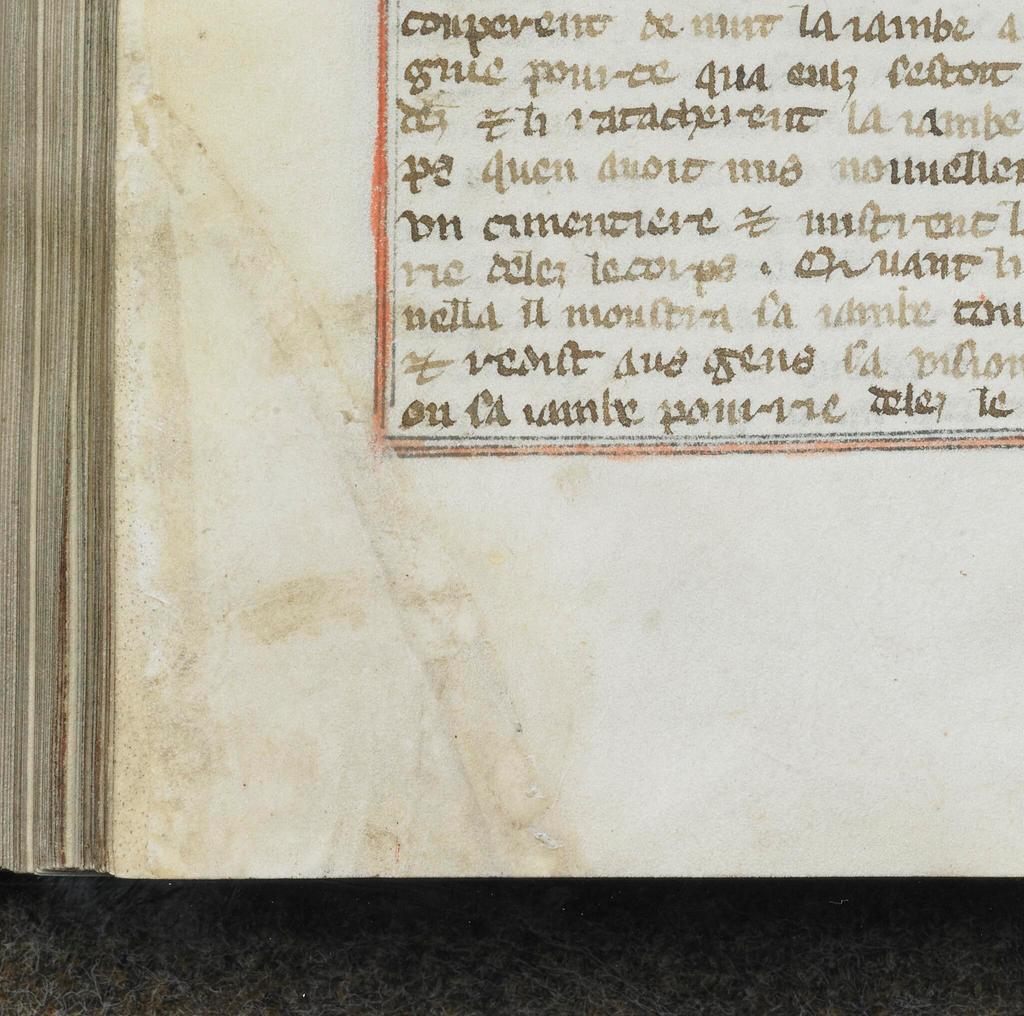 couperent de nuit la iambe a
giue pour ce qua eulz sestoit
dez ⁊ li ratacherent la iambe
ps quen auoit mis nouuellem
vn cimentiere ⁊ mistrent l
rie delez le corps . Quant li
nella il moustra sa iambe tou
⁊ redist aus gens sa vision
ou sa iambe pourrie delez le